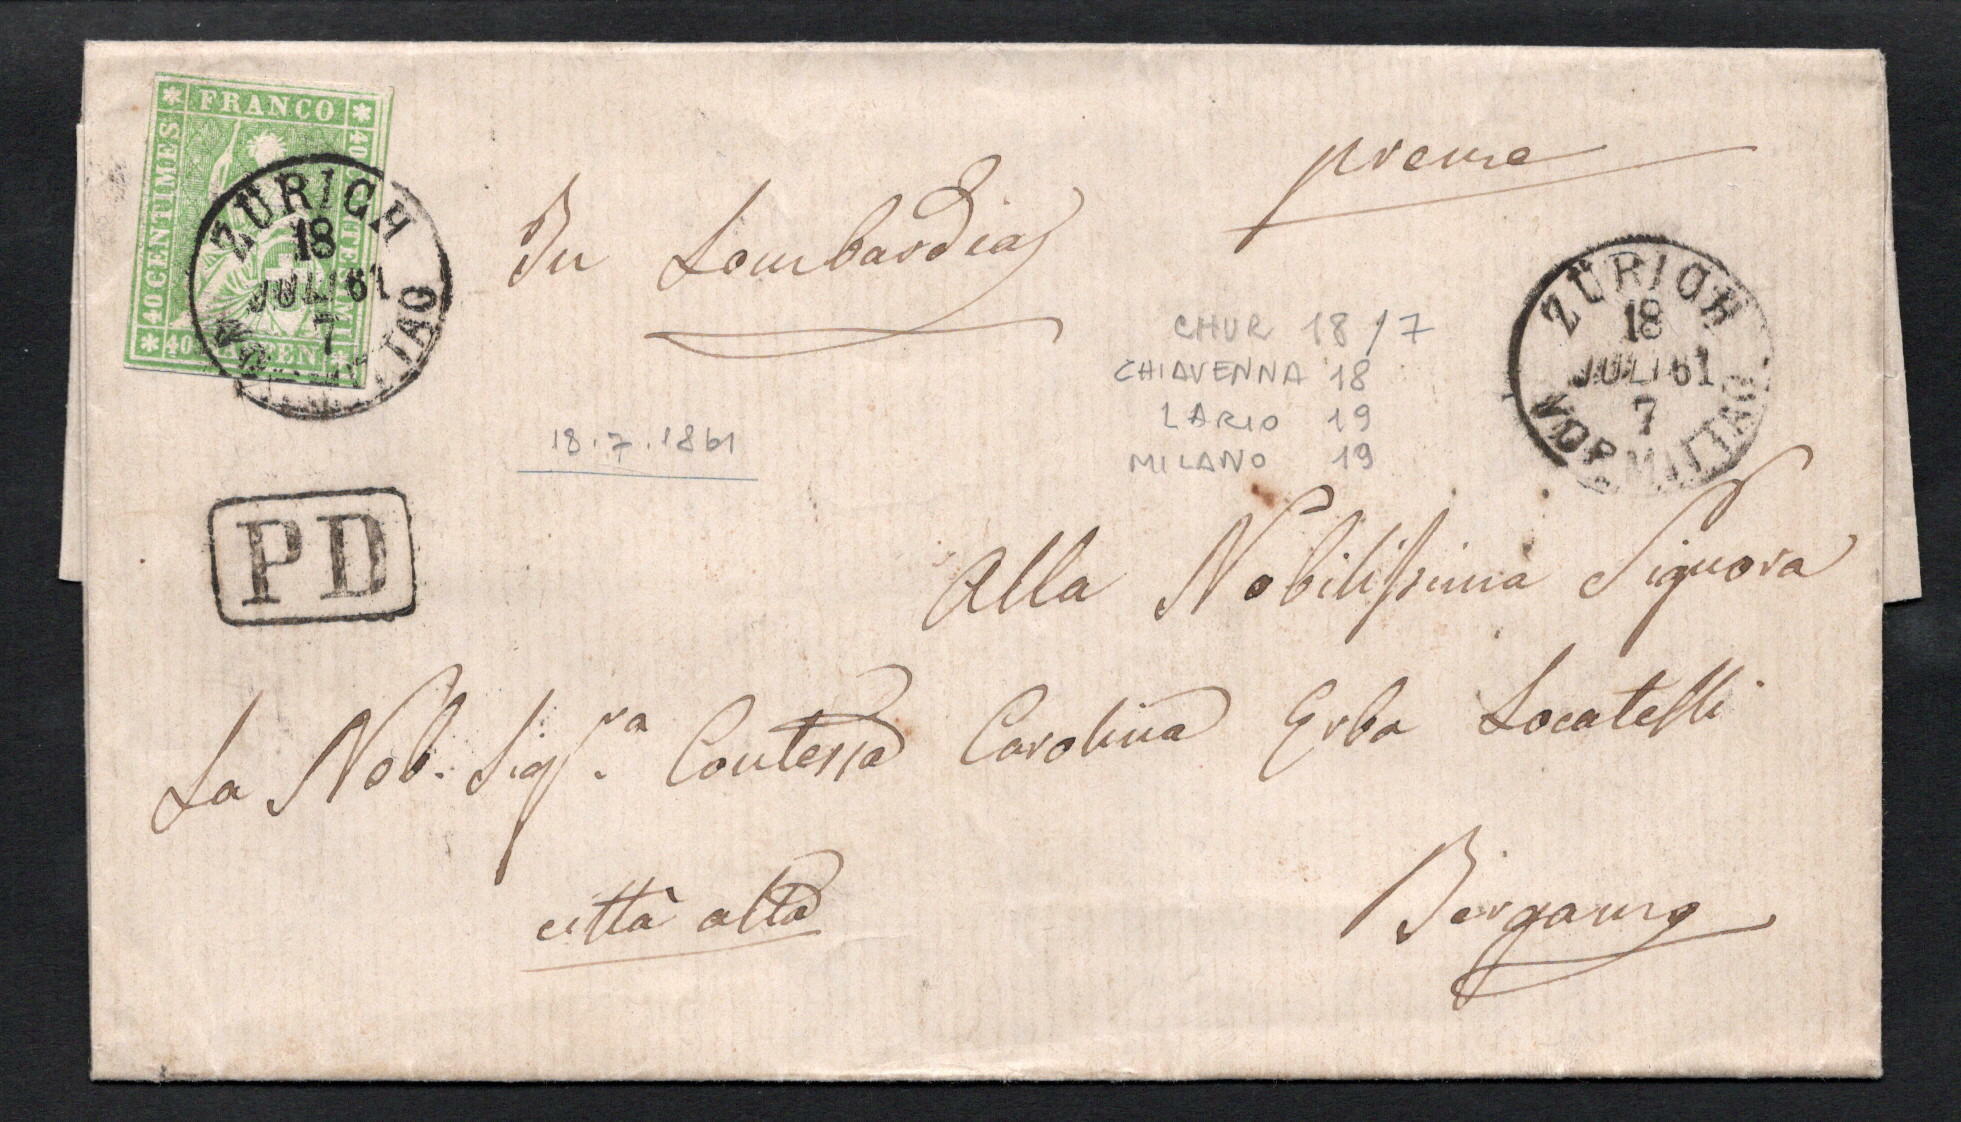 FRANCO
40 CENTIMES
40 RAPPEN
ZÜRICH
18
JULI 61
7
VORMITTAG
preme
In Lombardia
ZÜRICH
18
JULI 61
7
VORMITTAG
CHUR 18/7
CHIAVENNA 18
LARIO 19
MILANO 19
18.7.1861
PD
Alla Nobilissima Signora
La Nob. Sig.ra Contessa Carolina Erba Locatelli
città alta
Bergamo